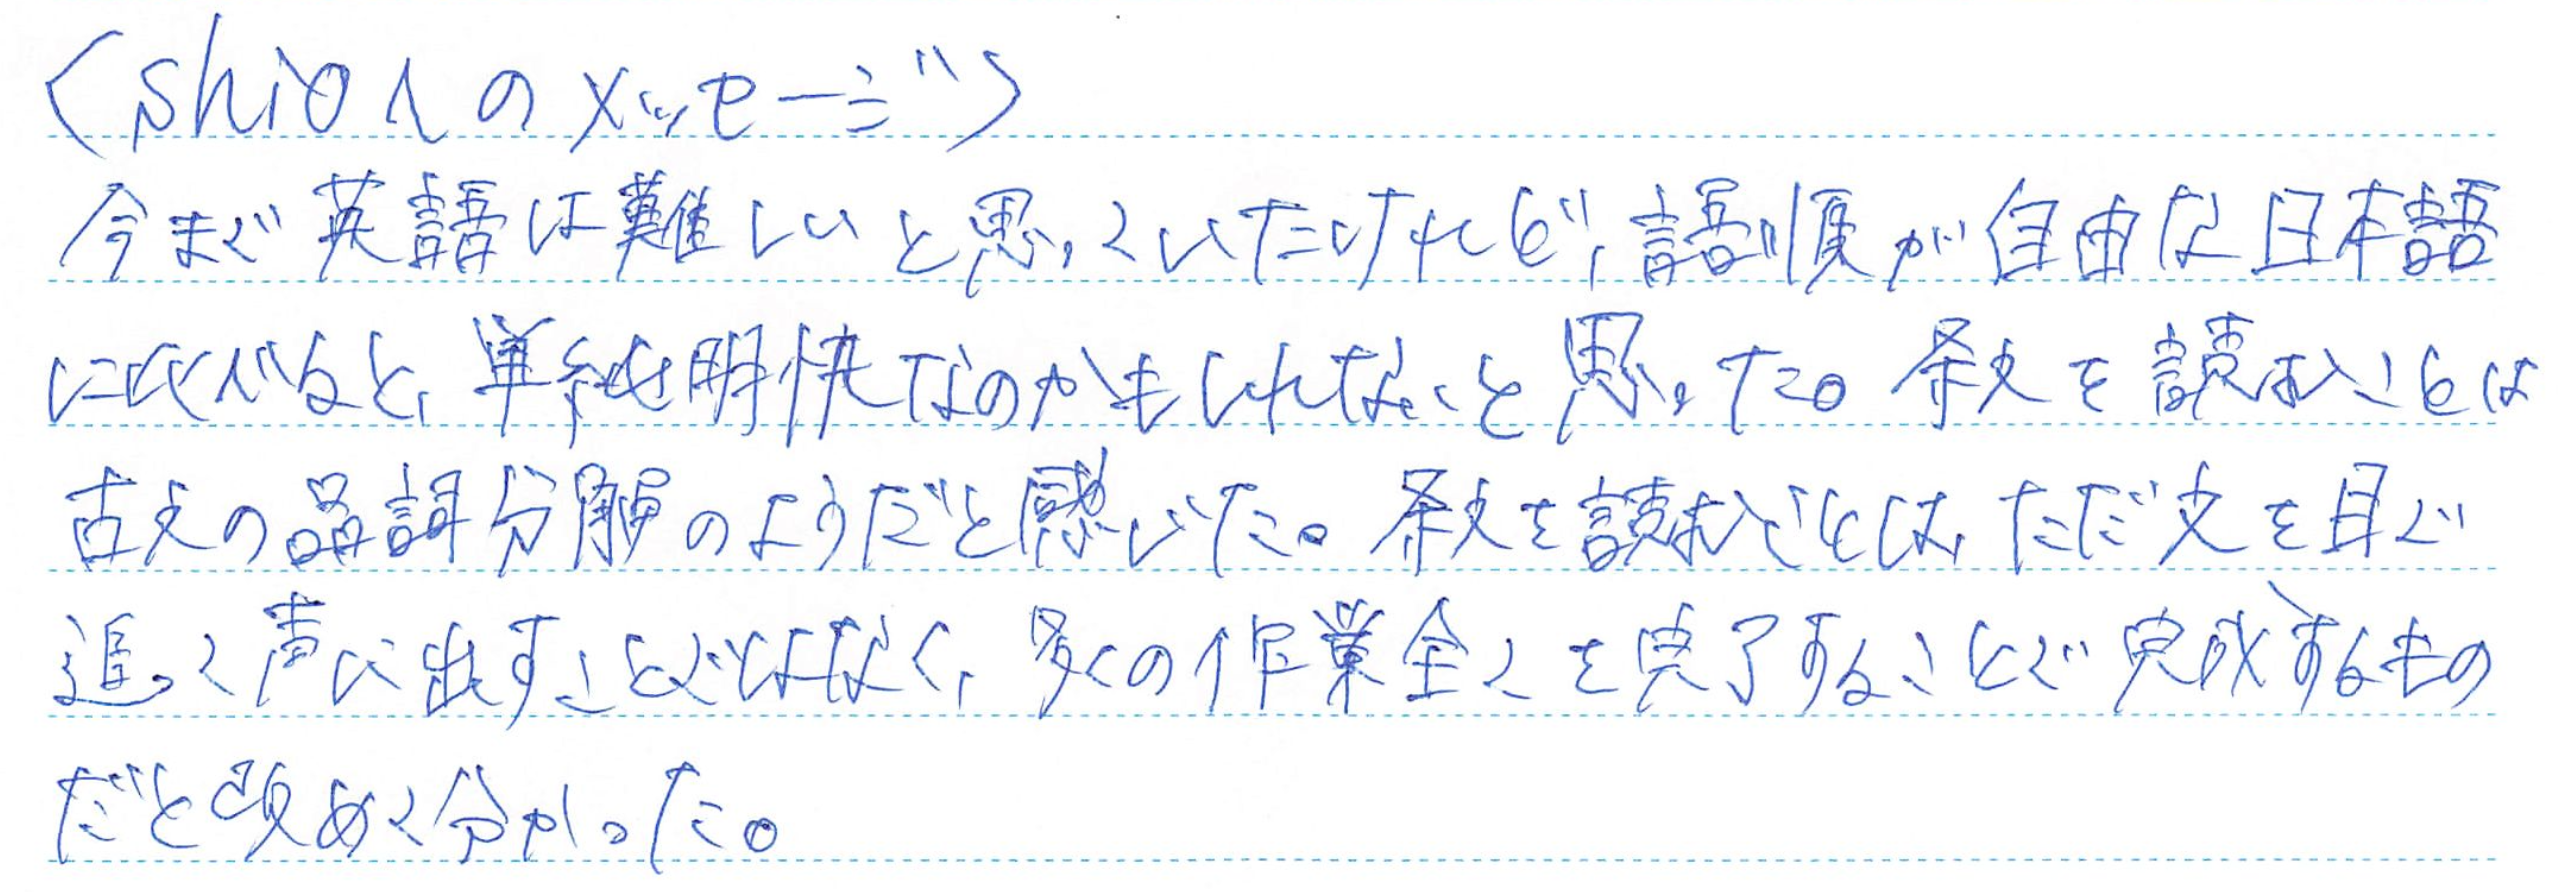 〈shioへのメッセージ〉
今まで英語は難しいと思っていたけれど、語順が自由な日本語
に比べると、単純明快なのかもしれないと思った。条文を読むことは
古文の品詞分解のようだと感じた。条文を読むことは、ただ文を目で
追って声に出すことではなく、多くの作業全てを完了することで完成するもの
だと改めて分かった。